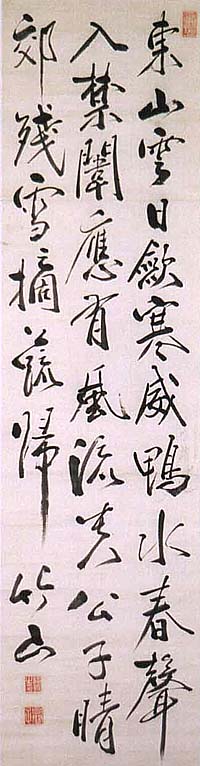 東山雲日斂寒威鴨水春聲
入禁闈應有風流美公子晴
郊殘雪摘蔬歸 竹山